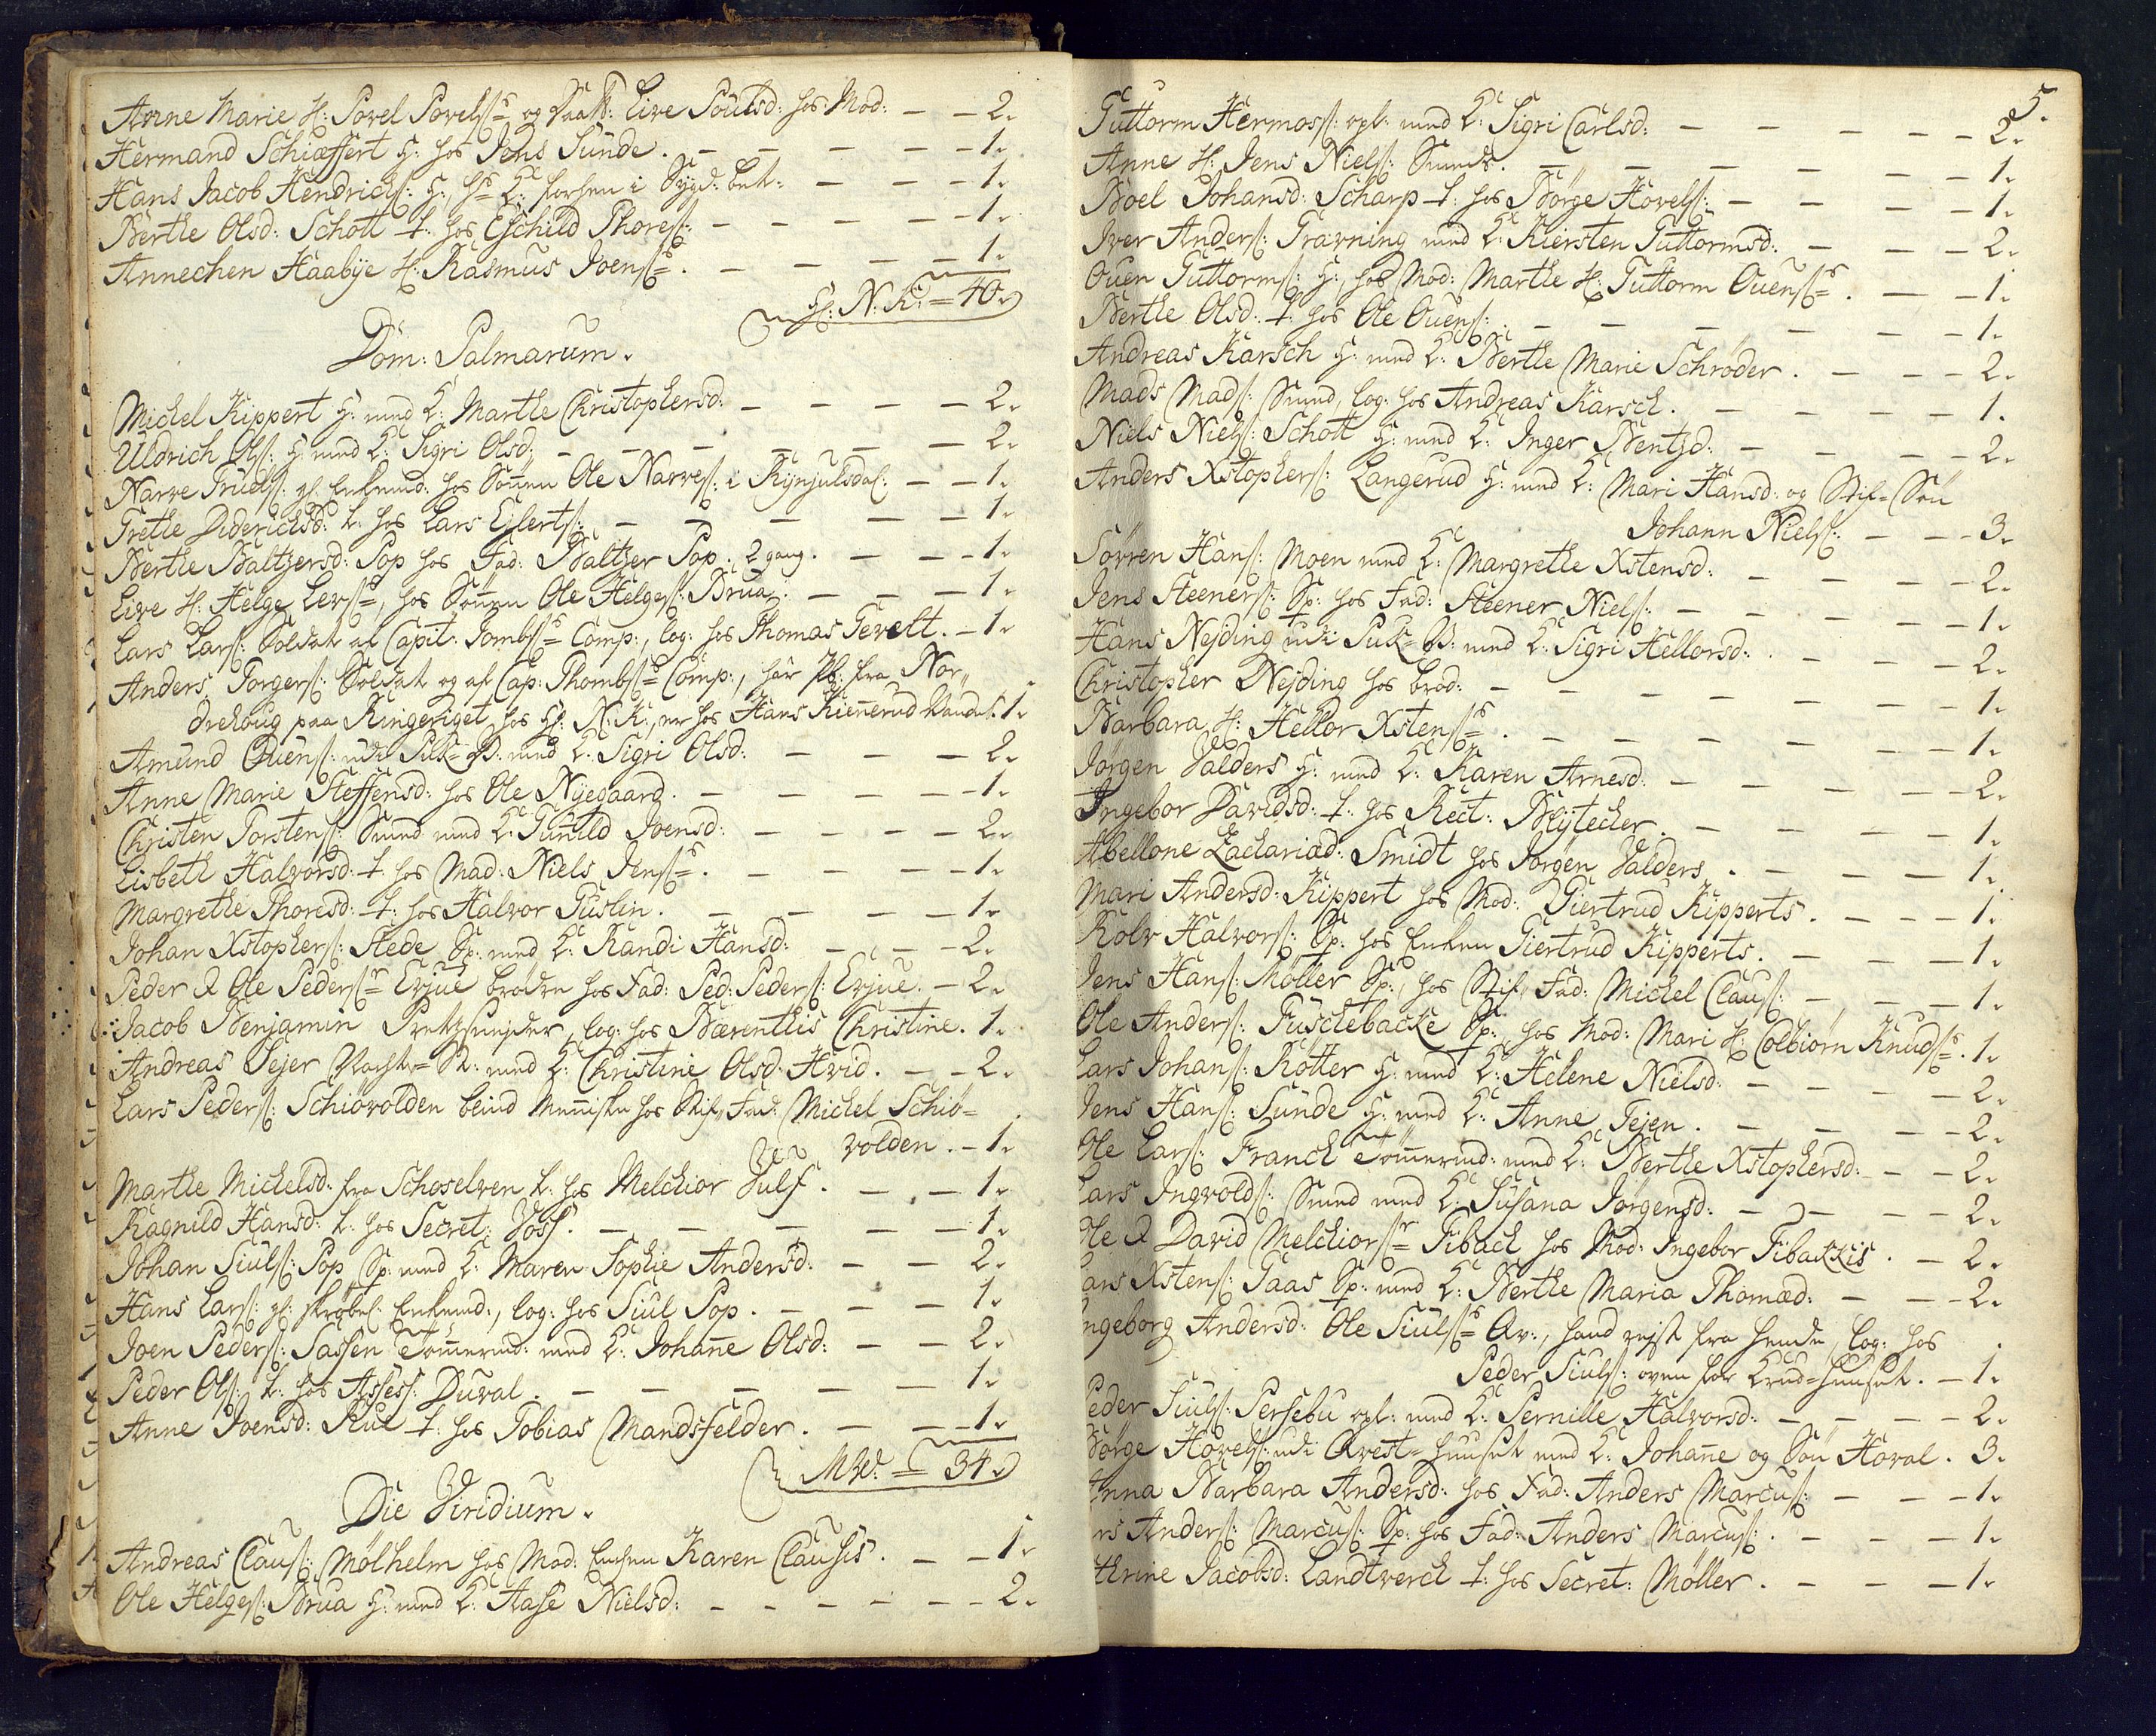 Anne Marie H: Povel Povelss: og Datt: Live Poulsd: hos Mod: — — 2.
Hermand Schiæffert G: hos Jens Sunde. — — — — 1.
Hans Jacob Hendrichs: G:, hs: K: forhen i Sygd: bek: — — — 1.
Berthe Olsd: Schott t: hos Eschild Thores: — — — — 1.
Annechen Haabye H: Rasmus Joens: . — — — — 1.
Hr: N: K: = 40.
Dom: Palmarum.
Michel Kippert G: med K: Marthe Christophersd: — — — — 2.
Uldrich Ols: G: med K: Sigri Olsd: — — — — — 2.
Narve Truels: gl: Enkemd: hos Sönnen Ole Narves: i Kynjulsdal: — — 1.
Grethe Diderichsd: t: hos Lars Ejlerts: — — — — 1.
Berthe Baltzersd: Pop hos Fad: Baltzer Pop. 2 gang. — — — 1.
Live H: Helge Levs:, hos Sönnen Ole Helges: Brua. — — — 1.
Lars Lars: Soldat af Capit: Tombs: Comp:, log: hos Thomas Gevelt. — 1.
Anders Torgers: Soldat og af Cap: Thombs: Comp:, har fra Nor„
drehoug paa Ringeriget hos Hr: N: K:, er hos Hans Kiennerud 1.
Amund Ouens: udi Puk-V: med K: Sigri Olsd: — — — 2.
Anne Marie Steffensd: hos Ole Nyegaard. — — — — 1.
Christen Torstens: Smed med K: Gunild Joensd: — — — — 2.
Lisbeth Halvorsd: t: hos Mad: Niels Jens: . — — — — 1.
Margrethe Thoresd: t: hos Halvor Fuslin. — — — — 1.
Johan Xstophers: Stede Sp: med K: Randi Hansd: — — — 2.
Peder & Ole Peders: Erjue brødre hos Fad: Ped: Peders: Erjue. — 2.
Jacob Benjamin, log: hos Bærenthis Christine. 1.
Andreas Sejer med K: Christine Olsd: Hvid. — — 2.
Lars Peders: Schiövolden blind Menniske hos Stif, Fad: Michel Schiö=
volden. — 1.
Marthe Michelsd: fra Schoselven t: hos Melchior Julf. — — 1.
Ragnild Hansd: t: hos Secret: Voss. — — — — — 1.
Johan Siuls: Pop Sp: med K: Maren Sophie Andersd: — — 2.
Hans Lars: gl: skröbel: Enkemd:, log: hos Siul Pop. — — — 1.
Joen Peders: Sassen Tömmermd: med K: Johanne Olsd: — — 2.
Peder Ols: t: hos Assess: Duval. — — — — — 1.
Anne Joensd: Rue t: hos Tobias Mandsfelder. — — — 1.
MW: = 34.
Die Viridium.
Andreas Claus: Mølhelm hos Mod: Enken Karen Clausis. — — 1.
Ole Helges: Brua G: med K: Aase Nielsd: — — — — — 2.
5.
Guttorm Hermos: opl: med K: Sigri Carlsd: — — — — — 2.
Anne H: Jens Niels: Smeds. — — — — — 1.
Boel Johansd: Scharp t: hos Børge Hovels: — — — — 1.
Iver Anders: Gravning med K: Kiersten Guttormsd: — — — 2.
Ouen Guttorms: G: hos Mod: Marthe H: Guttorm Ouens: . — — 1.
Berthe Olsd: t: hos Ole Ouens: — — — — — — 1.
Andreas Karsch G: med K: Berthe Marie Schrøder. — — — 2.
Mads Mads: Smed, log: hos Andreas Karsch. — — — — 1.
Niels Niels: Schott G: med K: Inger Bentzd: — — — — 2.
Anders Xstophers: Langerud G: med K: Mari Hansd: og Stif-Sön
Johann Niels: — — — 3.
Sörren Hans: Moen med K: Margrethe Xstensd: — — — — 2.
Jens Steeners: Sp: hos Fad: Steener Niels: — — — — 1.
Hans Nejding udi Puk-V: med K: Sigri Hellorsd: — — — 2.
Christopher Nejding hos brod: — — — — — 1.
Barbara H: Hellor Xstens: . — — — — — — 1.
Jørgen Valders G: med K: Karen Arnesd: — — — — — 2.
Ingebor Davidsd: t: hos Rect: Blytecher. — — — — 1.
Abellone Zachariæd: Smidt hos Jørgen Valders. — — — — 1.
Mari Andersd: Kippert hos Mod: Giertrud Kipperts. — — — 1.
Rolv Halvors: Sp: hos Enken Giertrud Kipperts. — — — 1.
Jens Hans: Möller Sp:, hos Stif, Fad: Michel Claus: — — — 1.
Ole Anders: Fuschebacke Sp:, hos Mod: Mari H: Colbiørn Knuds: . 1.
Lars Johans: Kotter G: med K: Helene Nielsd: — — — — 2.
Jens Hans: Sunde G: med K: Anne Tejen. — — — — 2.
Ole Lars: Franck Tömmermd: med K: Berthe Xstophersd: — — 2.
Lars Ingvolds: Smed med K: Susana Jørgensd: — — — — 2.
Ole & David Melchiors: Fibach hos Mod: Ingebor Fibachis. — 2.
Lars Xstens: Gaas Sp: med K: Berthe Maria Thomæd: — — — 2.
Ingeborg Andersd: Ole Siuls: Qv:, hand rejst fra hende, log: hos
Peder Siuls: oven for Krud-Huuset. — 1.
Peder Siuls: Persebu opl: med K: Pernille Halvorsd: — — — — 2.
Børge Hovels: udi Qvest-Huuset med K: Johanne og Sön Hoval. 3.
Anna Barbara Andersd: hos Fad: Anders Marcus: — — — 1.
rs Anders: Marcus: Sp: hos Fad: Anders Marcus: . — — — 1.
thrine Jacobsd: Landtverch t: hos Secret: Møller. — — — 1.